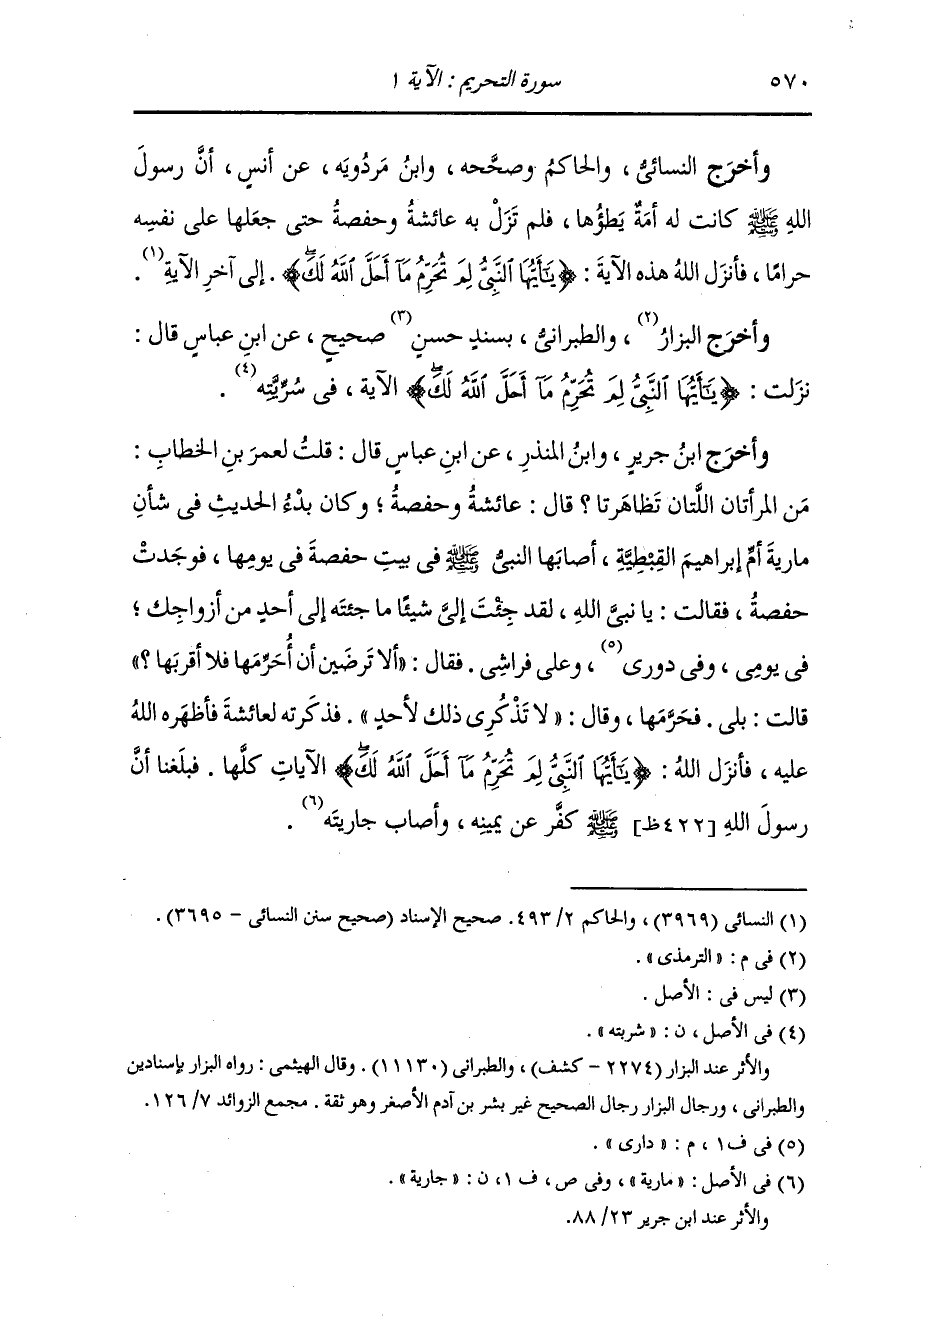 ٥٧٠
سورة التحريم : الآية ١
وأخرَج النسائىُّ ، والحاكمُ وصحَّحه ، وابنُ مَردُويَه ، عن أنسٍ ، أنَّ رسولَ
اللهِ ﷺ كانت له أمَةٌ يَطؤُها ، فلم تَزَلْ به عائشةُ وحفصةُ حتى جعَلها على نفسِه
حرامًا ، فأنزَل اللهُ هذه الآيةَ : ﴿يَٰٓأَيُّهَا ٱلنَّبِيُّ لِمَ تُحَرِّمُ مَآ أَحَلَّ ٱللَّهُ لَكَۖ﴾ . إلى آخرِ الآيةِ(١) .
وأخرَج البزارُ(٢) ، والطبرانىُّ ، بسندٍ حسنٍ(٣) صحيحٍ ، عن ابنِ عباسٍ قال :
نزَلت : ﴿يَٰٓأَيُّهَا ٱلنَّبِيُّ لِمَ تُحَرِّمُ مَآ أَحَلَّ ٱللَّهُ لَكَۖ﴾ الآية ، فى سُرِّيَّتِه(٤) .
وأخرَج ابنُ جريرٍ ، وابنُ المنذرِ ، عن ابنِ عباسٍ قال : قلتُ لعمرَ بنِ الخطابِ :
مَن المرأتان اللَّتان تَظاهَرتا ؟ قال : عائشةُ وحفصةُ ؛ وكان بدْءُ الحديثِ فى شأنِ
ماريةَ أمِّ إبراهيمَ القِبْطِيَّةِ ، أصابَها النبىُّ ﷺ فى بيتِ حفصةَ فى يومِها ، فوجَدتْ
حفصةُ ، فقالت : يا نبىَّ اللهِ ، لقد جِئْتَ إلىَّ شيئًا ما جئتَه إلى أحدٍ من أزواجِك ؛
فى يومِى ، وفى دورى(٥) ، وعلى فراشِى . فقال : «ألا تَرضَين أن أُحَرِّمَها فلا أقربَها ؟»
قالت : بلى . فحَرَّمَها ، وقال : « لا تَذْكُرِى ذلك لأحدٍ » . فذكَرته لعائشةَ فأظهَره اللهُ
عليه ، فأنزَل اللهُ : ﴿يَٰٓأَيُّهَا ٱلنَّبِيُّ لِمَ تُحَرِّمُ مَآ أَحَلَّ ٱللَّهُ لَكَۖ﴾ الآياتِ كلَّها . فبلَغنا أنَّ
رسولَ اللهِ [٤٢٢ظ] ﷺ كفَّر عن يمينِه ، وأصاب جاريتَه(٦) .
(١) النسائى (٣٩٦٩) ، والحاكم ٢/ ٤٩٣. صحيح الإسناد (صحيح سنن النسائى – ٣٦٩٥) .
(٢) فى م : « الترمذى » .
(٣) ليس فى : الأصل .
(٤) فى الأصل ، ن : « شربته » .
والأثر عند البزار (٢٢٧٤ – كشف) ، والطبرانى (١١١٣٠) . وقال الهيثمى : رواه البزار بإسنادين
والطبرانى ، ورجال البزار رجال الصحيح غير بشر بن آدم الأصغر وهو ثقة . مجمع الزوائد ٧/ ١٢٦.
(٥) فى ف١ ، م : « دارى » .
(٦) فى الأصل : « مارية » ، وفى ص ، ف ١، ن : « جارية » .
والأثر عند ابن جرير ٢٣/ ٨٨.